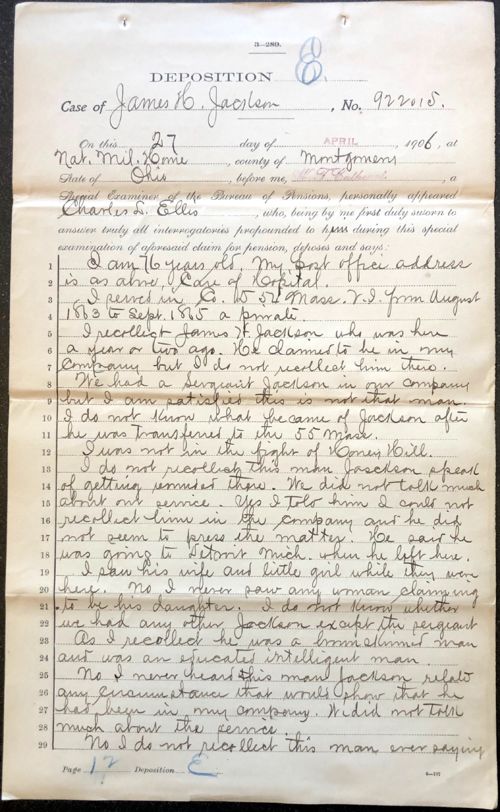 3—289.
DEPOSITION E
Case of James H. Jackson, No. 922015.
On this 27 day of APRIL, 1906, at
Nat. Mil. Home, county of Montgomery
State of Ohio, before me, a
Special Examiner of the Bureau of Pensions, personally appeared
Charles L. Ellis, who, being by me first duly sworn to
answer truly all interrogatories propounded to him during this special
examination of aforesaid claim for pension, deposes and says:
1 I am 76 years old, my post office address
2 is as above, Care of Hospital.
3 I served in Co. 54 Mass. V.I. from August
4 1863 to Sept. 1865 a private.
5 I recollect James H. Jackson who was here
6 a year or two ago. He claimed to be in my
7 Company but I do not recollect him there.
8 We had a Sergeant Jackson in our company
9 but I am satisfied this is not that man.
10 I do not know what became of Jackson after
11 he was transferred to the 55 Mass.
12 I was not in the fight of Honey Hill.
13 I do not recollect this man Jackson speak
14 of getting wounded there. We did not talk much
15 about our service. Yes I told him I could not
16 recollect him in the company and he did
17 not seem to press the matter. He said he
18 was going to Detroit Mich. when he left here.
19 I saw his wife and little girl while they were
20 here. No I never saw any woman claiming
21 to be his daughter. I do not know whether
22 we had any other Jackson except the sergeant
23 As I recollect he was a brownskinned man
24 and was an educated intelligent man.
25 No I never heard this man Jackson relate
26 any circumstance that would show that he
27 had been in my company. We did not talk
28 much about the service.
29 No I do not recollect this man ever saying
Page 12 Deposition E